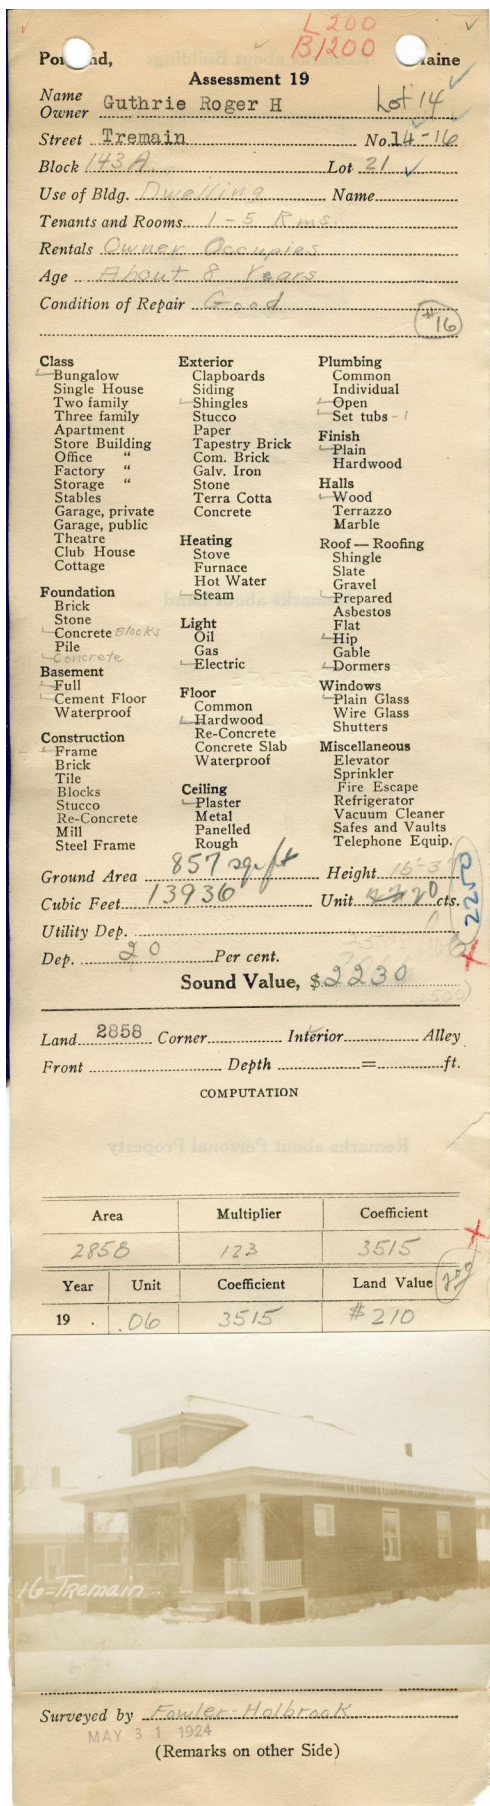 L 200
B 1200
Portland, Maine
Assessment 19
Name
Owner Guthrie Roger H Lot 14
Street Tremain No. 14-16
Block 143A Lot 21
Use of Bldg. Dwelling Name
Tenants and Rooms 1-5 Rms.
Rentals Owner Occupies
Age About 8 Years
Condition of Repair Good
#16
Class
Bungalow
Single House
Two family
Three family
Apartment
Store Building
Office "
Factory "
Storage "
Stables
Garage, private
Garage, public
Theatre
Club House
Cottage
Foundation
Brick
Stone
Concrete Blocks
Pile
Concrete
Basement
Full
Cement Floor
Waterproof
Construction
Frame
Brick
Tile
Blocks
Stucco
Re-Concrete
Mill
Steel Frame
Exterior
Clapboards
Siding
Shingles
Stucco
Paper
Tapestry Brick
Com. Brick
Galv. Iron
Stone
Terra Cotta
Concrete
Heating
Stove
Furnace
Hot Water
Steam
Light
Oil
Gas
Electric
Floor
Common
Hardwood
Re-Concrete
Concrete Slab
Waterproof
Ceiling
Plaster
Metal
Panelled
Rough
Plumbing
Common
Individual
Open
Set tubs - 1
Finish
Plain
Hardwood
Halls
Wood
Terrazzo
Marble
Roof — Roofing
Shingle
Slate
Gravel
Prepared
Asbestos
Flat
Hip
Gable
Dormers
Windows
Plain Glass
Wire Glass
Shutters
Miscellaneous
Elevator
Sprinkler
Fire Escape
Refrigerator
Vacuum Cleaner
Safes and Vaults
Telephone Equip.
Ground Area 857 sq. ft Height 16'-3"
Cubic Feet 13936 Unit 20 cts.
2250
Utility Dep.
Dep. 20 Per cent.
Sound Value, $ 2230
Land 2858 Corner Interior Alley
Front Depth = ft.
COMPUTATION
Area Multiplier Coefficient
2858 123 3515
Year Unit Coefficient Land Value
19 . .06 3515 $210
16-Tremain
Surveyed by Fowler-Holbrook
MAY 31 1924
(Remarks on other Side)